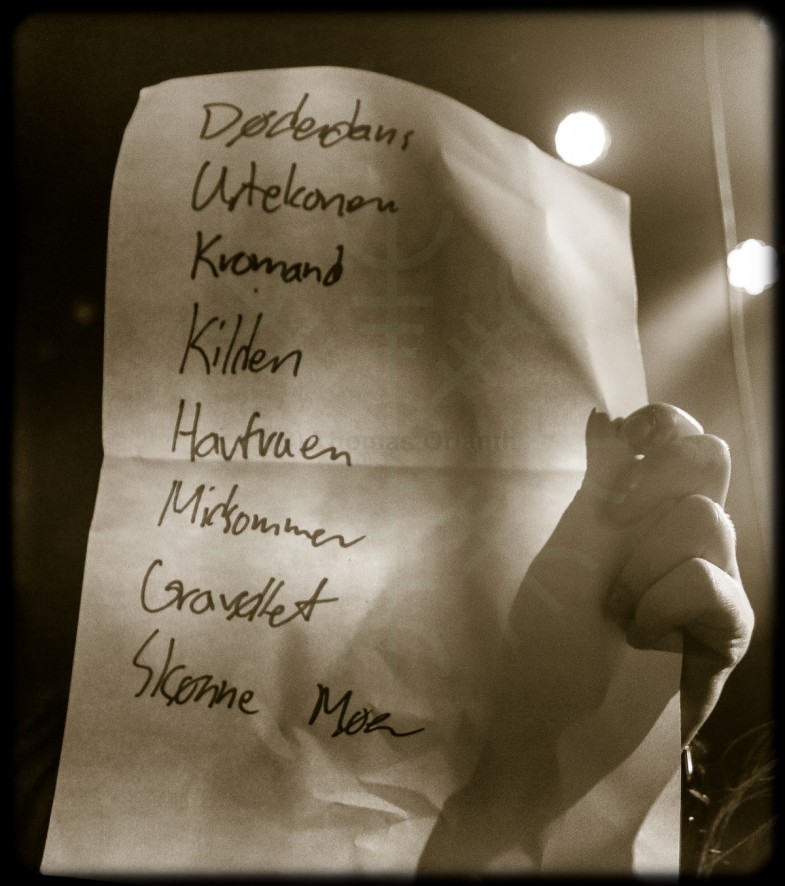 Dødedans
Urtekonen
Kromand
Kilden
Havfruen
Midsommer
Gravøllet
Skønne Møer